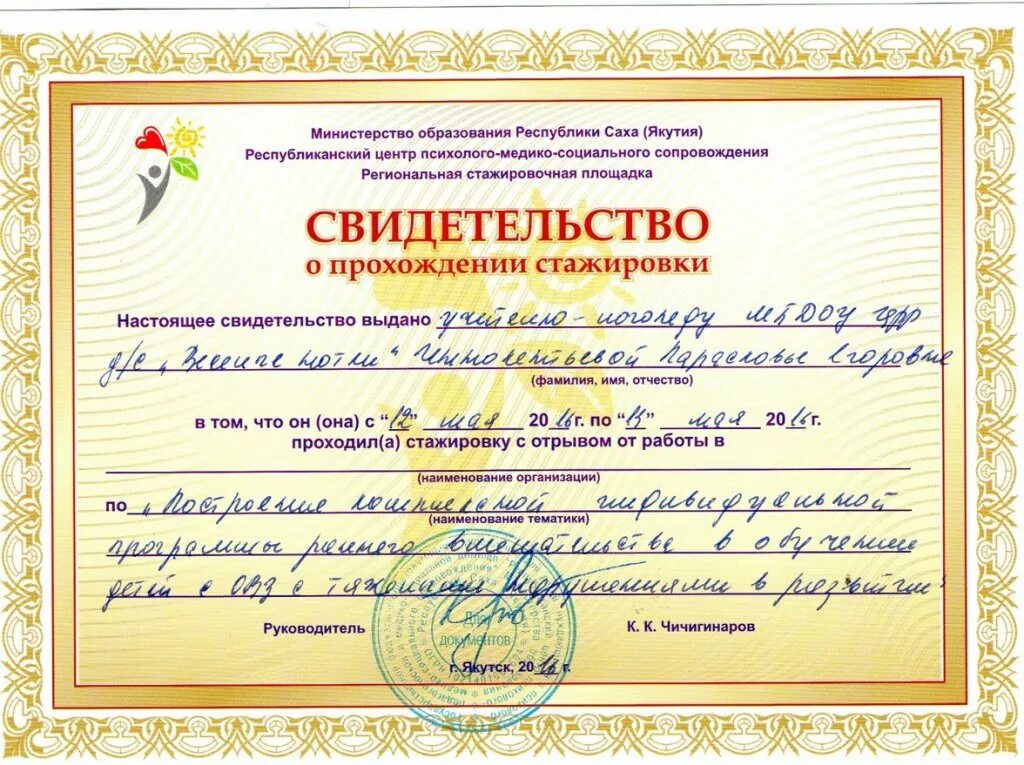 Министерство образования Республики Саха (Якутия)
Республиканский центр психолого-медико-социального сопровождения
Региональная стажировочная площадка
СВИДЕТЕЛЬСТВО
о прохождении стажировки
Настоящее свидетельство выдано учителю-логопеду МБДОУ црр
д/с Иннокентьевой Парасковье Егоровне
(фамилия, имя, отчество)
в том, что он (она) с "12" мая 2016г. по "13" мая 2016г.
проходил(а) стажировку с отрывом от работы в
(наименование организации)
по "Построение комплексной индивидуальной
(наименование тематики)
программы раннего вмешательства в обучении
детей с ОВЗ с тяжелыми нарушениями в развитии"
Руководитель К. К. Чичигинаров
Для
документов
г. Якутск, 2016 г.